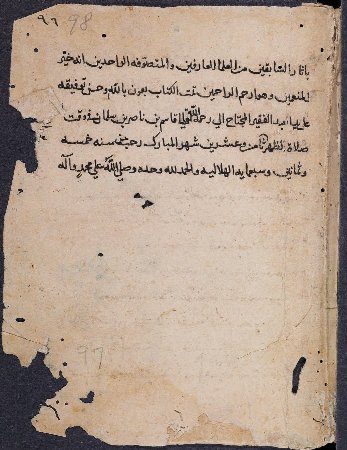 ٩٦ 98
باثار السابقين من العلما العارفين والمتصوفه الواحدين انه خير
المنعمين وهو ارحم الراحمين تمت الكتاب بعون الله وحسن توفيقه
على يد العبد الفقير المحتاج الي رحمة الله تعالي قاسم بن ناصر بن في وقت
صلاة الظهر ثامن وعشرين شهر المبارك رجب سنه خمسه
وثمانين وسبعمايه الهلاليه والحمد لله وحده وصلى الله علي محمد وآله
97